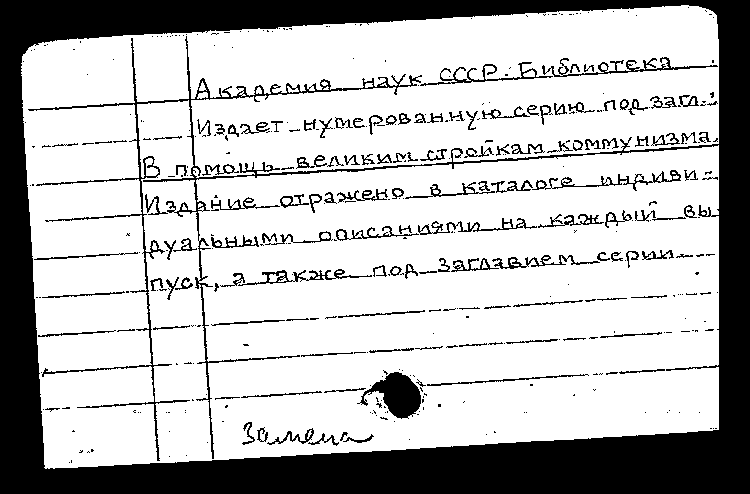 Академия наук СССР. Библиотека.
Издает нумерованную серию под загл.:
В помощь великим стройкам коммунизма.
Издание отражено в каталоге индиви-
дуальными описаниями на каждый вы-
пуск, а также под заглавием серии.
Замена